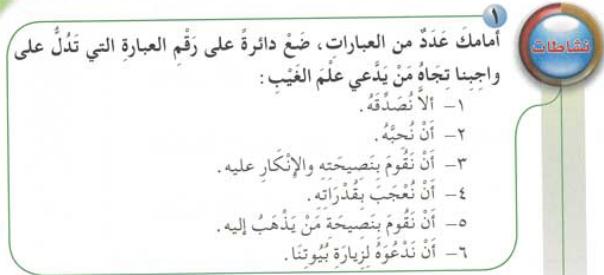 ١
نشاطات
أمامكَ عَدَدٌ من العباراتِ، ضَعْ دائرةً على رَقْمِ العبارةِ التي تَدُلُّ على
واجبِنا تجَاهُ مَنْ يَدَّعي عِلْمَ الغَيْبِ :
١- ألاَّ نُصَدِّقَهُ .
٢- أَنْ نُحِبَّهُ .
٣- أَنْ نَقُومَ بِنَصيحَتِهِ والإِنْكَارِ عليه .
٤- أَنْ نُعْجَبَ بِقُدْرَاتِهِ .
٥- أَنْ نَقُومَ بِنَصيحَةِ مَنْ يَذْهَبُ إليه .
٦- أَنْ نَدْعُوَهُ لِزِيارَةِ بُيُوتِنَا .